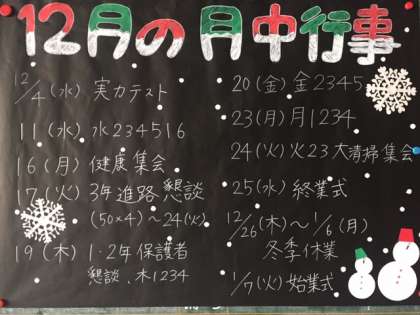 12月の月中行事
12/4(水) 実力テスト
11(水) 水234516
16(月) 健康集会
17(火) 3年進路懇談
(50×4)~24(火)
19(木) 1·2年保護者
懇談、木1234
20(金) 金2345
23(月) 月1234
24(火) 火23大清掃集会
25(水) 終業式
12/26(木)~1/6(月)
冬季休業
1/7(火) 始業式